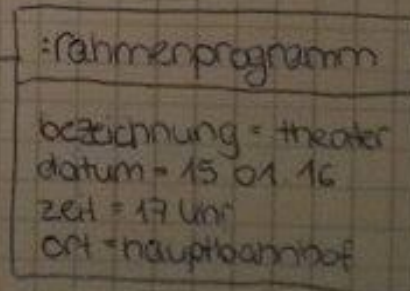 :rahmenprogramm
bezeichnung = theater
datum = 15 01 16
zeit = 17 Uhr
ort = hauptbahnhof